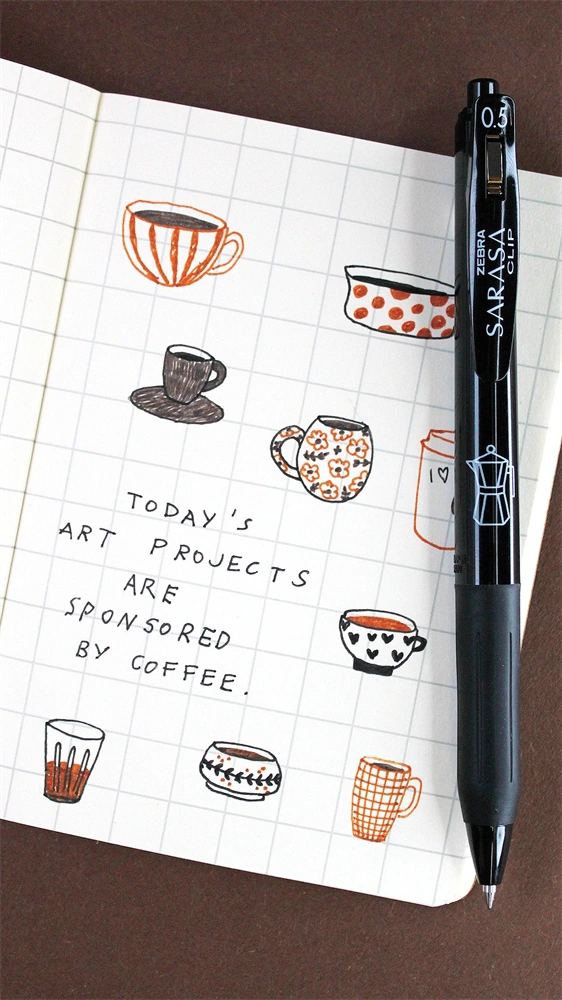 0.5
ZEBRA
SARASA
CLIP
I ♡
TODAY's
ART PROJECTS
ARE
SPONSORED
BY COFFEE.